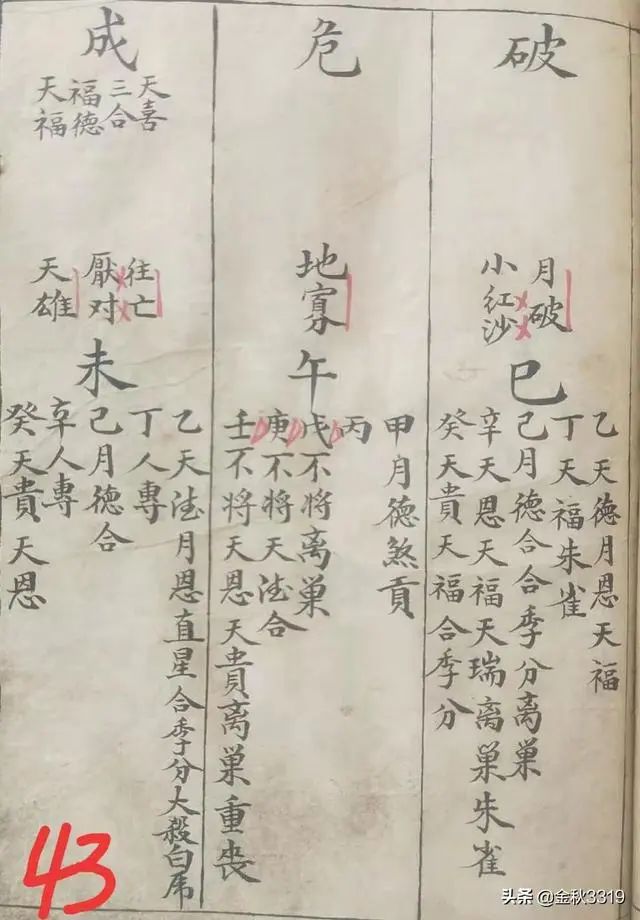 破
月破
小红沙
巳
乙天德月恩天福
丁天福朱雀
己月德合合季分离巢
辛天恩天福天瑞离巢朱雀
癸天貴天福合季分
危
地寡
午
甲月德煞貢
丙
戊不将离巢
庚不将天法合
壬不将天恩天貴离巢重喪
成
天喜
三合
福德
天福
往亡
厭对
天雄
未
乙天法月恩直星合季分大殺白虎
丁人專
己月德合
辛人專
癸天貴天恩
43
头条 @金秋3319